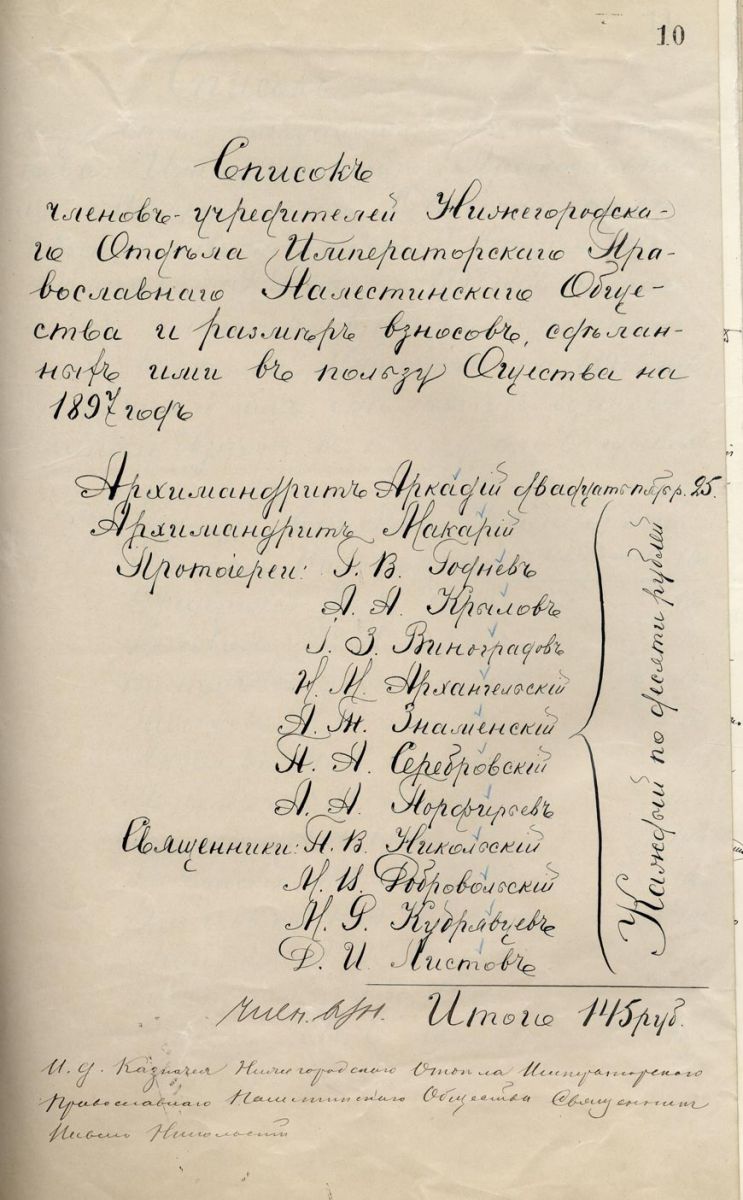 10
Списокъ
членовъ-учредителей Нижегородска-
го Отдѣла Императорскаго Пра-
вославнаго Палестинскаго Обще-
ства и размѣръ взносовъ, сдѣлан-
ныхъ ими въ пользу Общества на
1897 годъ
Архимандритъ Аркадій двадцать пять р. 25.
Архимандритъ Макарій
Протоіереи: Г. В. Годневъ
А. А. Крыловъ
І. З. Виноградовъ
Н. М. Архангельскій
А. Ж. Знаменскій
П. А. Серебровскій
А. А. Порфирьевъ
Священники: П. В. Никольскій
М. И. Добровольскій
М. Ѳ. Кудрявцевъ
Д. И. Листовъ
Каждый по десяти рублей
член. взн. Итого 145 руб.
И. д. Казначея Нижегородскаго Отдѣла Императорскаго
Православнаго Палестинскаго Общества Священникъ
Никольскій